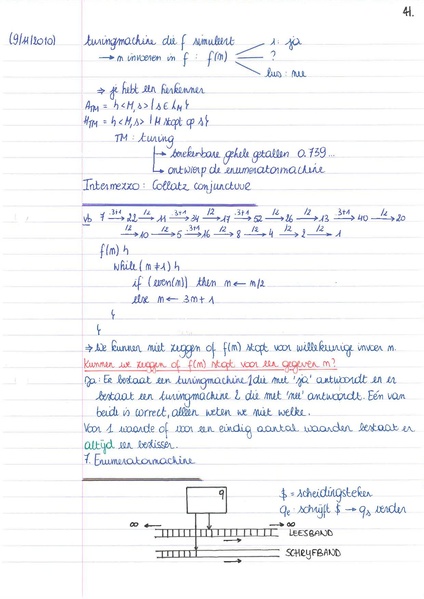 41.
(9/11/2010) turingmachine die f simuleert
→ n invoeren in f : f(n) 1: ja
?
lus: nee
⇒ je hebt een herkenner
A_TM = {<M,s> | s ∈ L_M}
H_TM = {<M,s> | M stopt op s}
TM: turing
→ berekenbare gehele getallen 0.739...
→ ontwierp de enumeratormachine
Intermezzo: Collatz conjuncture
vb 7 →(3+1) 22 →(/2) 11 →(3+1) 34 →(/2) 17 →(3+1) 52 →(/2) 26 →(/2) 13 →(3+1) 40 →(/2) 20
→(/2) 10 →(/2) 5 →(3+1) 16 →(/2) 8 →(/2) 4 →(/2) 2 →(/2) 1
f(n) {
while (n ≠ 1) {
if (even(n)) then n ← n/2
else n ← 3n + 1
}
}
⇒ We kunnen niet zeggen of f(n) stopt voor willekeurige invoer n.
Kunnen we zeggen of f(n) stopt voor een gegeven n?
Ja: Er bestaat een turingmachine 1 die met 'ja' antwoordt en er
bestaat een turingmachine 2 die met 'nee' antwoordt. Eén van
beide is correct, alleen weten we niet welke.
Voor 1 waarde of voor een eindig aantal waarden bestaat er
altijd een beslisser.
7. Enumeratormachine
q
$ = scheidingsteken
q_e: schrijft $ → q_s verder
∞ ∞
LEESBAND
SCHRIJFBAND